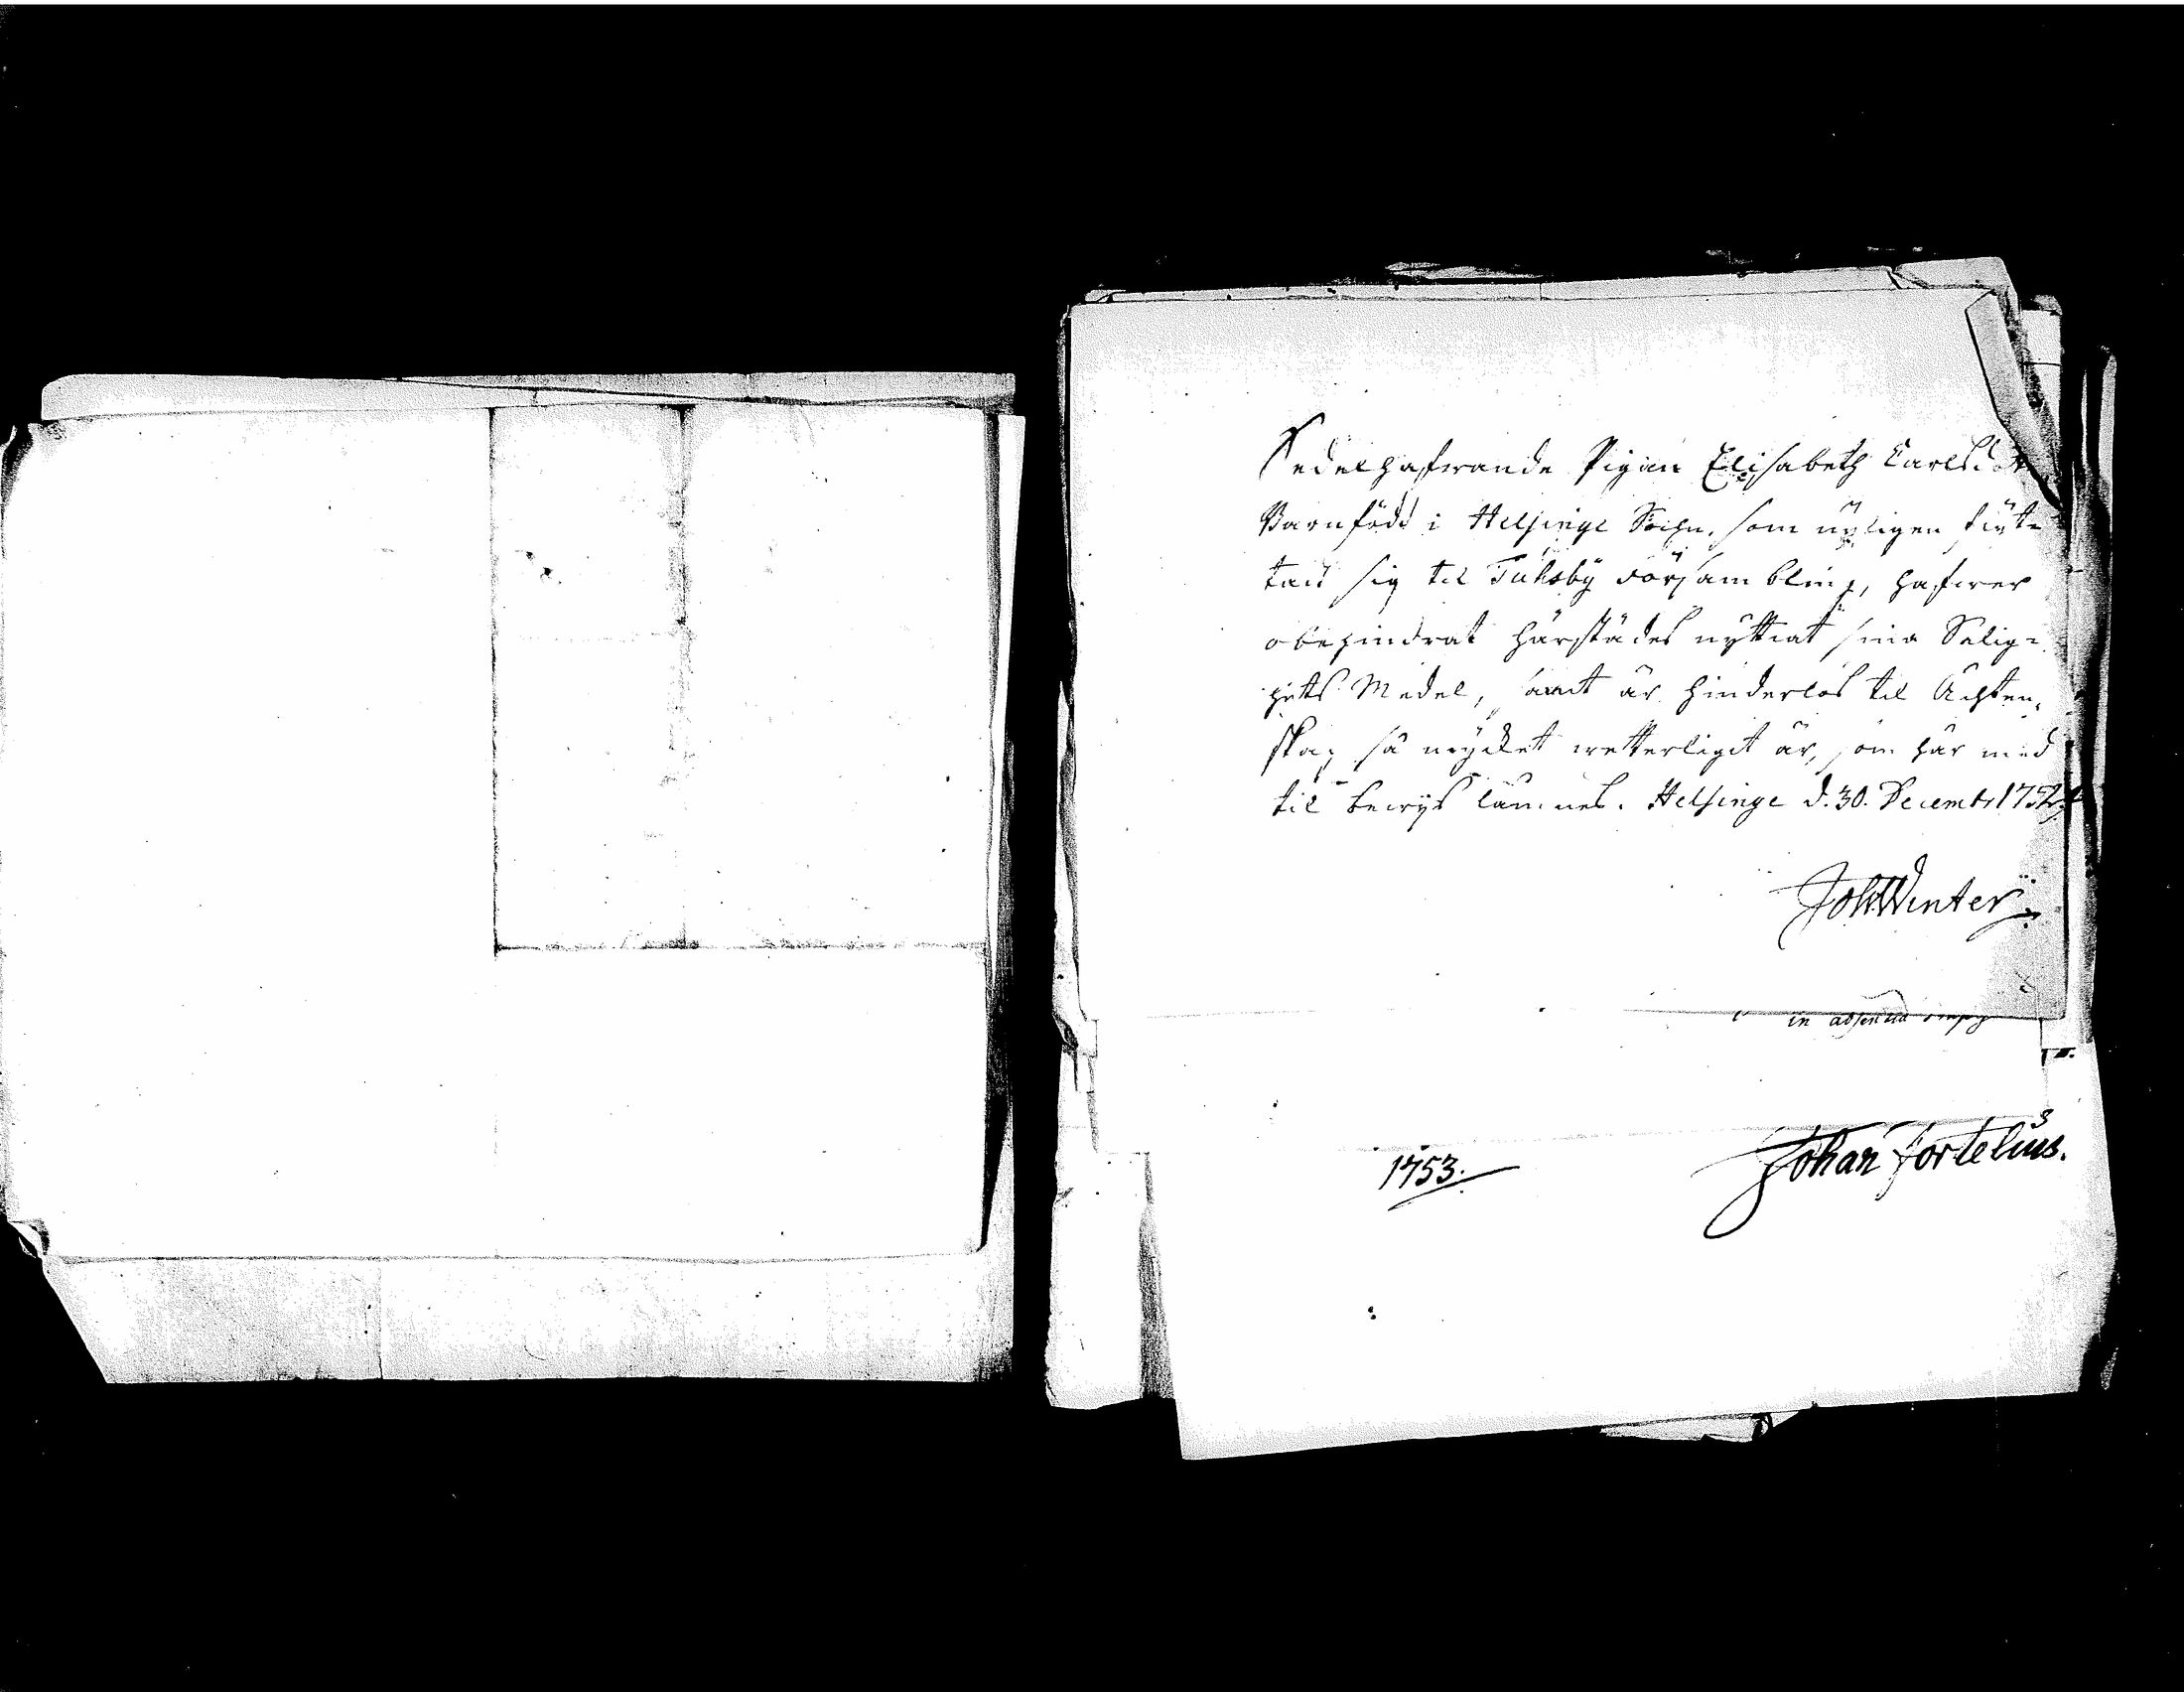 Sedelhafwande Pigan Elisabeth Carlsdot
Barnfödd i Helsinge Sochn, som nyligen flÿt-
tat sig til Tuhsbÿ Försambling, hafwer
obehindrat härstädes nyttiat sina Salig-
hets Medel, samt är hinderlös til Ächten-
skap så mycket wetterligit är, som här med
til bewijs lämnes. Helsinge d. 30. Decembr 1752
Joh. Winter
in absentia
1753.
Johan Fortelius.